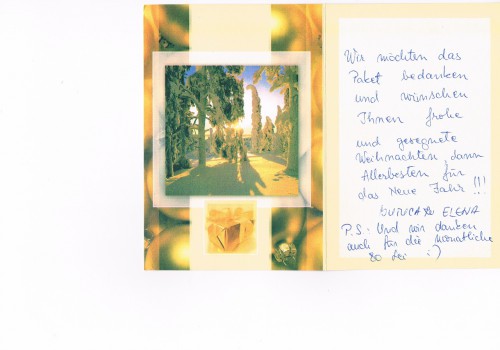 Wir möchten das
Paket bedanken
und wünschen
Ihnen frohe
und gesegnete
Weihnachten, dann
Allerbesten für
das Neue Jahr !!!
ELENA
P.S. Und wir danken
auch für die monatliche
80 Lei :)